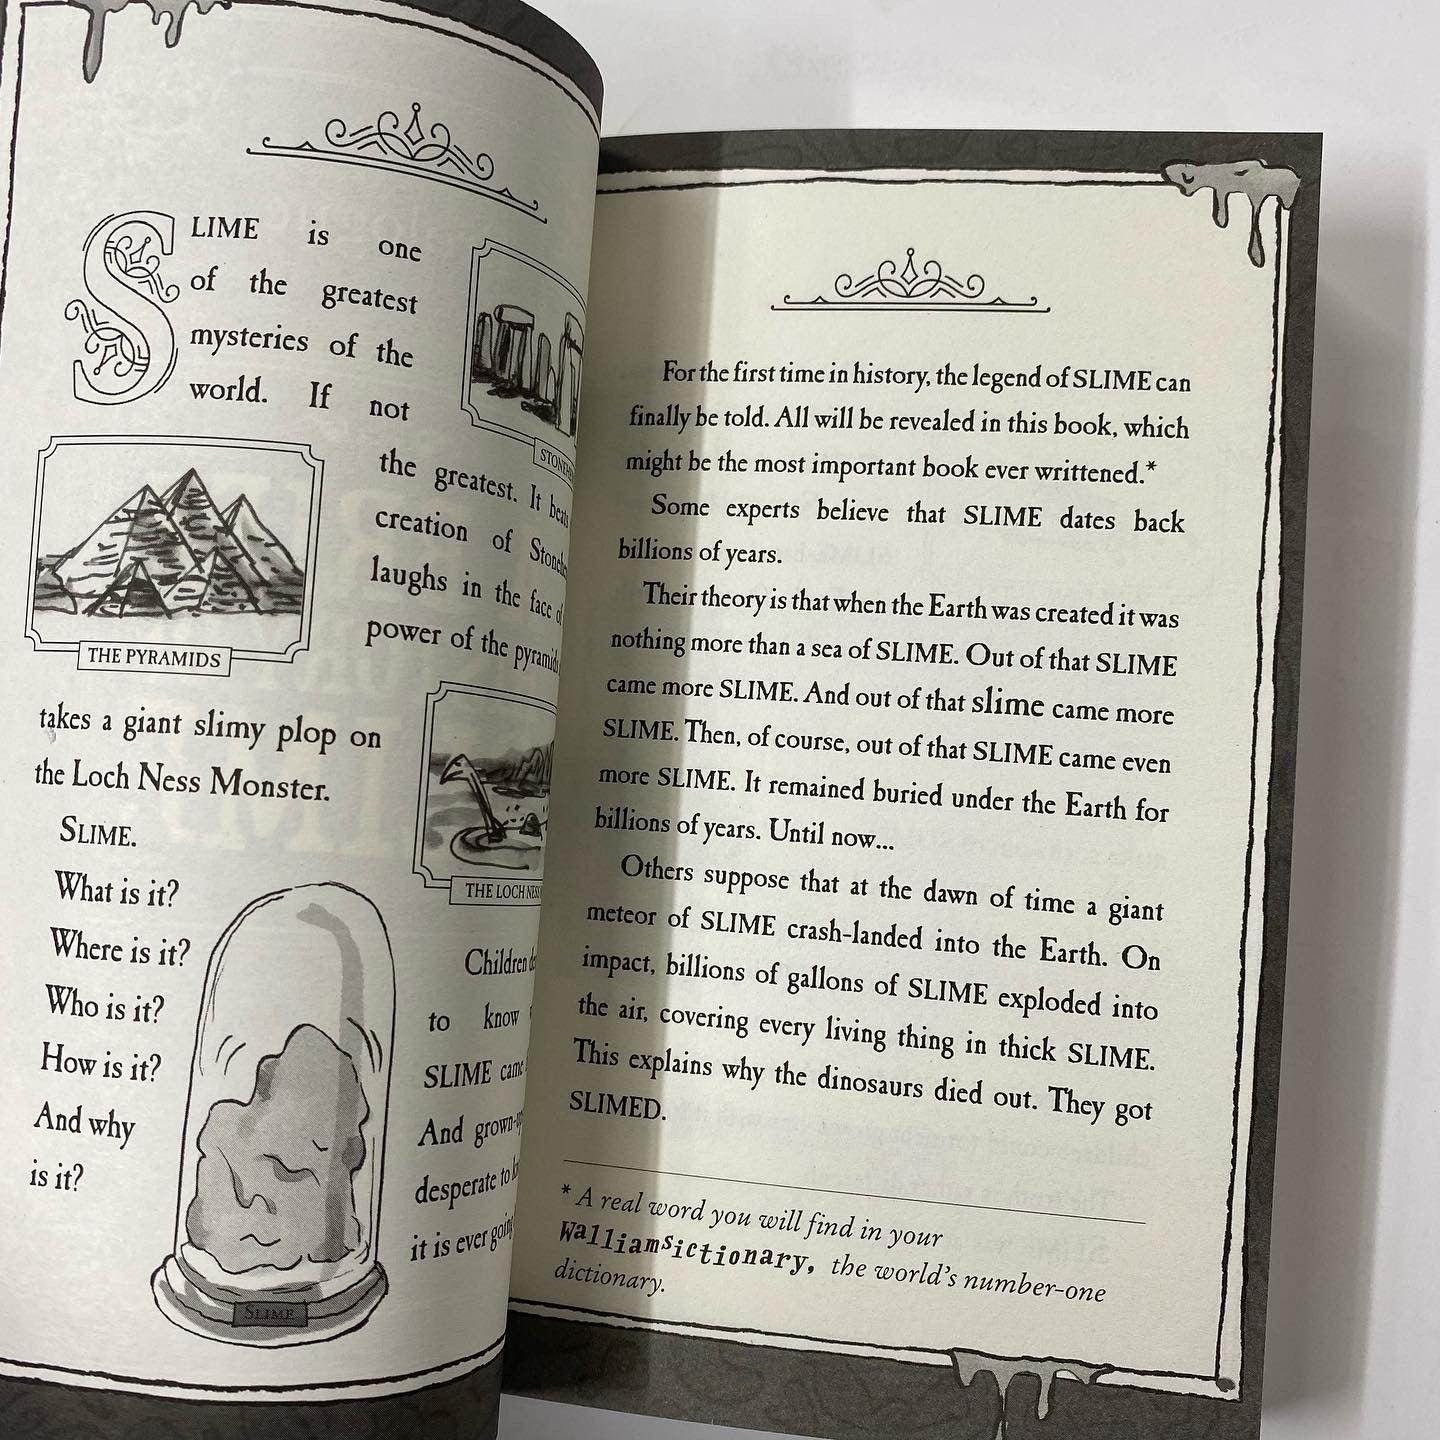 SLIME is one
of the greatest
mysteries of the
world. If not
the greatest. It beats
creation of
laughs in the face of
power of the pyramids
THE PYRAMIDS
takes a giant slimy plop on
the Loch Ness Monster.
THE LOCH
SLIME.
What is it?
Where is it?
Who is it?
How is it?
And why
is it?
Children
to know
SLIME came
And
desperate to
it is ever
SLIME
For the first time in history, the legend of SLIME can
finally be told. All will be revealed in this book, which
might be the most important book ever writtened.*
Some experts believe that SLIME dates back
billions of years.
Their theory is that when the Earth was created it was
nothing more than a sea of SLIME. Out of that SLIME
came more SLIME. And out of that slime came more
SLIME. Then, of course, out of that SLIME came even
more SLIME. It remained buried under the Earth for
billions of years. Until now...
Others suppose that at the dawn of time a giant
meteor of SLIME crash-landed into the Earth. On
impact, billions of gallons of SLIME exploded into
the air, covering every living thing in thick SLIME.
This explains why the dinosaurs died out. They got
SLIMED.
* A real word you will find in your
Walliamsictionary, the world's number-one
dictionary.